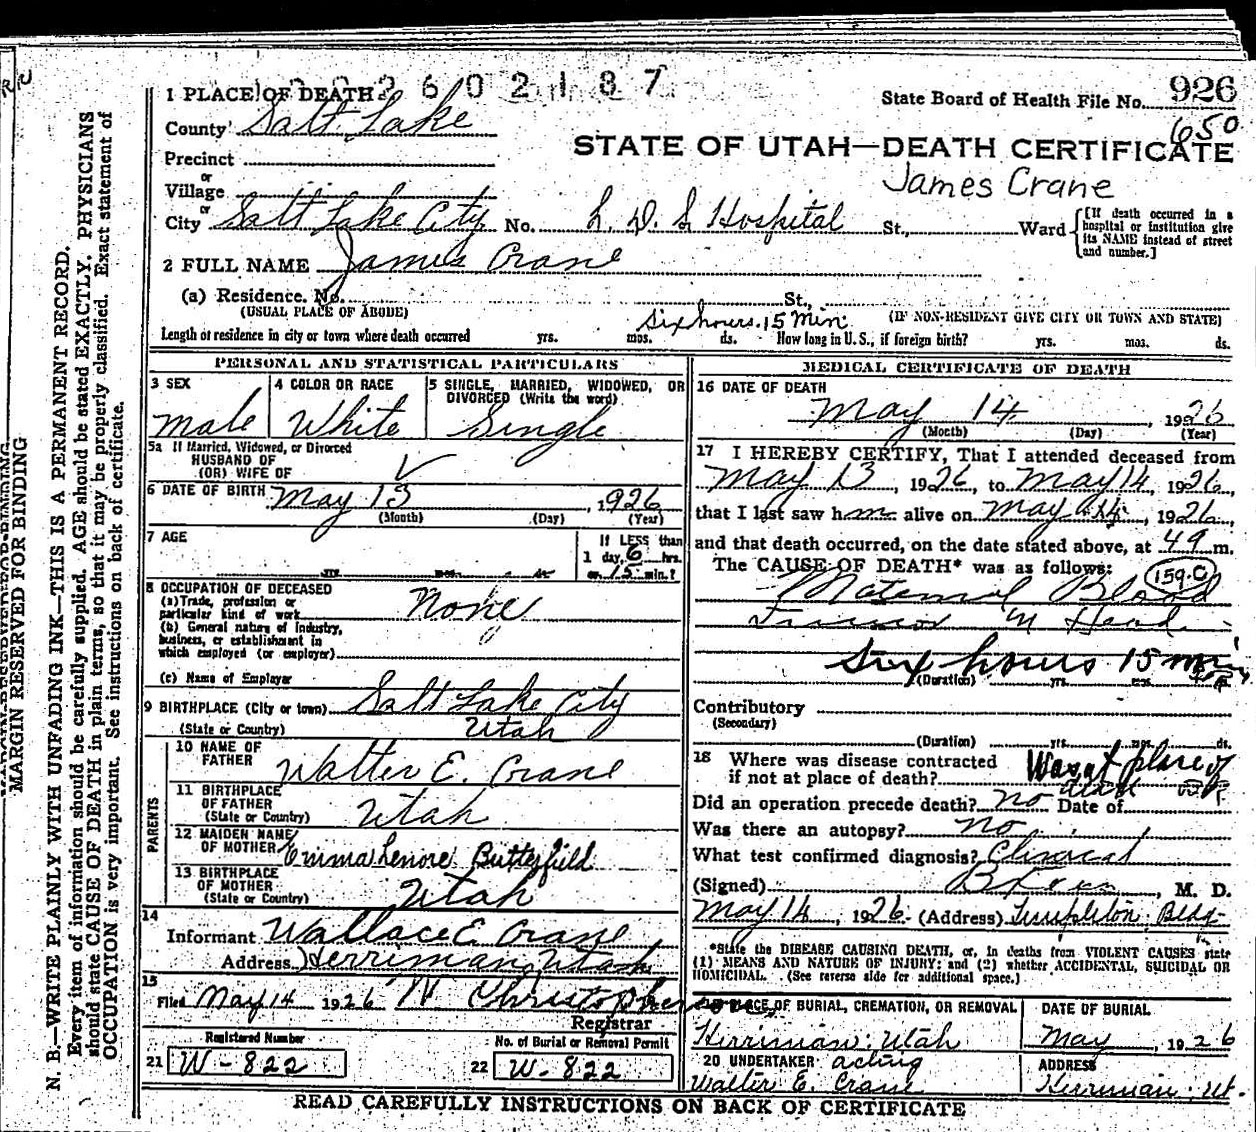 2602187
926
1 PLACE OF DEATH
State Board of Health File No. 650
County Salt Lake
STATE OF UTAH—DEATH CERTIFICATE
Precinct
or
James Crane
Village
or
City Salt Lake City No. L. D. S. Hospital St., Ward
[If death occurred in a hospital or institution give its NAME instead of street and number.]
2 FULL NAME James Crane
(a) Residence. No. St.,
(USUAL PLACE OF ABODE) (IF NON-RESIDENT GIVE CITY OR TOWN AND STATE)
six hours. 15 Min.
Length of residence in city or town where death occurred yrs. mos. ds. How long in U. S., if foreign birth? yrs. mos. ds.
PERSONAL AND STATISTICAL PARTICULARS
3 SEX 4 COLOR OR RACE 5 SINGLE, MARRIED, WIDOWED, OR
DIVORCED (Write the word)
Male White Single
5a If Married, Widowed, or Divorced
HUSBAND OF
(OR) WIFE OF
6 DATE OF BIRTH May 13, 1926
(Month) (Day) (Year)
7 AGE If LESS than
1 day, 6 hrs.
yrs. mos. ds. or 15 min.?
8 OCCUPATION OF DECEASED
(a) Trade, profession or
particular kind of work None
(b) General nature of industry,
business, or establishment in
which employed (or employer)
(c) Name of Employer
9 BIRTHPLACE (City or town) Salt Lake City
(State or Country) Utah
PARENTS
10 NAME OF
FATHER Walter E. Crane
11 BIRTHPLACE
OF FATHER
(State or Country) Utah
12 MAIDEN NAME
OF MOTHER Emma Lenore Butterfield
13 BIRTHPLACE
OF MOTHER
(State or Country) Utah
14
Informant Wallace E. Crane
Address Herriman, Utah
15
Filed May 14 1926 N Christopherson
Registrar
Registered Number No. of Burial or Removal Permit
21 W-822 22 W-822
MEDICAL CERTIFICATE OF DEATH
16 DATE OF DEATH
May 14, 1926
(Month) (Day) (Year)
17 I HEREBY CERTIFY, That I attended deceased from
May 13, 1926, to May 14, 1926,
that I last saw him alive on May 14, 1926,
and that death occurred, on the date stated above, at 4 a m.
The CAUSE OF DEATH* was as follows:
159-C
Maternal Blood
in Head
Six hours 15 min
(Duration) yrs. mos. ds.
Contributory
(Secondary)
(Duration) yrs. mos. ds.
18 Where was disease contracted
if not at place of death? Was at place of
death
Did an operation precede death? No Date of
Was there an autopsy? no
What test confirmed diagnosis? Clinical
(Signed) , M. D.
May 14, 1926 (Address) Templeton Bldg
*State the DISEASE CAUSING DEATH, or, in deaths from VIOLENT CAUSES state
(1) MEANS AND NATURE OF INJURY; and (2) whether ACCIDENTAL, SUICIDAL OR
HOMICIDAL. (See reverse side for additional space.)
PLACE OF BURIAL, CREMATION, OR REMOVAL DATE OF BURIAL
Herriman, Utah May, 1926
20 UNDERTAKER acting ADDRESS
Walter E. Crane Herriman, Ut.
READ CAREFULLY INSTRUCTIONS ON BACK OF CERTIFICATE
MARGIN RESERVED FOR BINDING
N. B.—WRITE PLAINLY WITH UNFADING INK—THIS IS A PERMANENT RECORD.
Every item of information should be carefully supplied. AGE should be stated EXACTLY. PHYSICIANS
should state CAUSE OF DEATH in plain terms, so that it may be properly classified. Exact statement of
OCCUPATION is very important. See instructions on back of certificate.